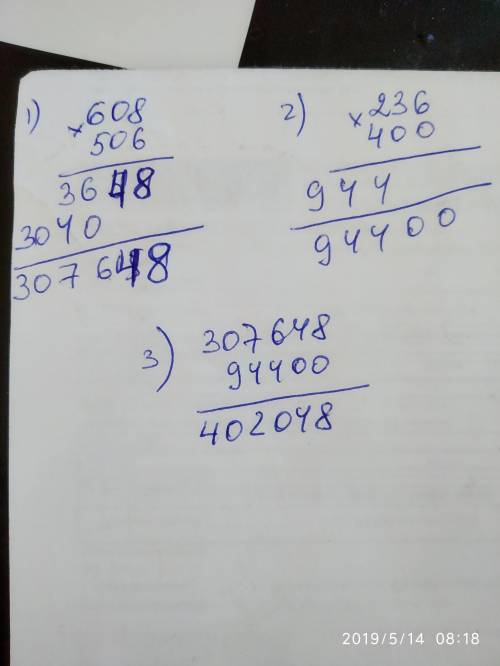 1) ×608
506
3648
3040
307648
2) ×236
400
944
94400
3) 307648
94400
402048
2019/5/14 08:18